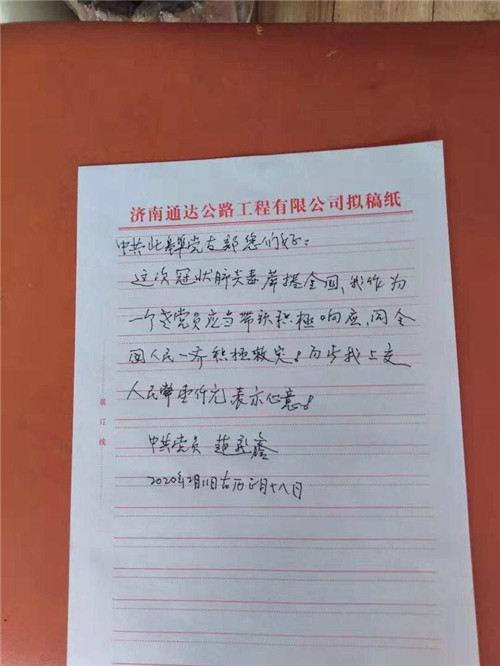 济南通达公路工程有限公司拟稿纸
中共北辜党支部您们好:
这次冠状肺炎毒席捲全国、我作为
一个老党员应当带头积极响应,同全
国人民一齐积极救灾!为此我上交
人民幣壹仟元表示心意!
中共党员 赵
2020年2月11日古历正月十八日
装订线